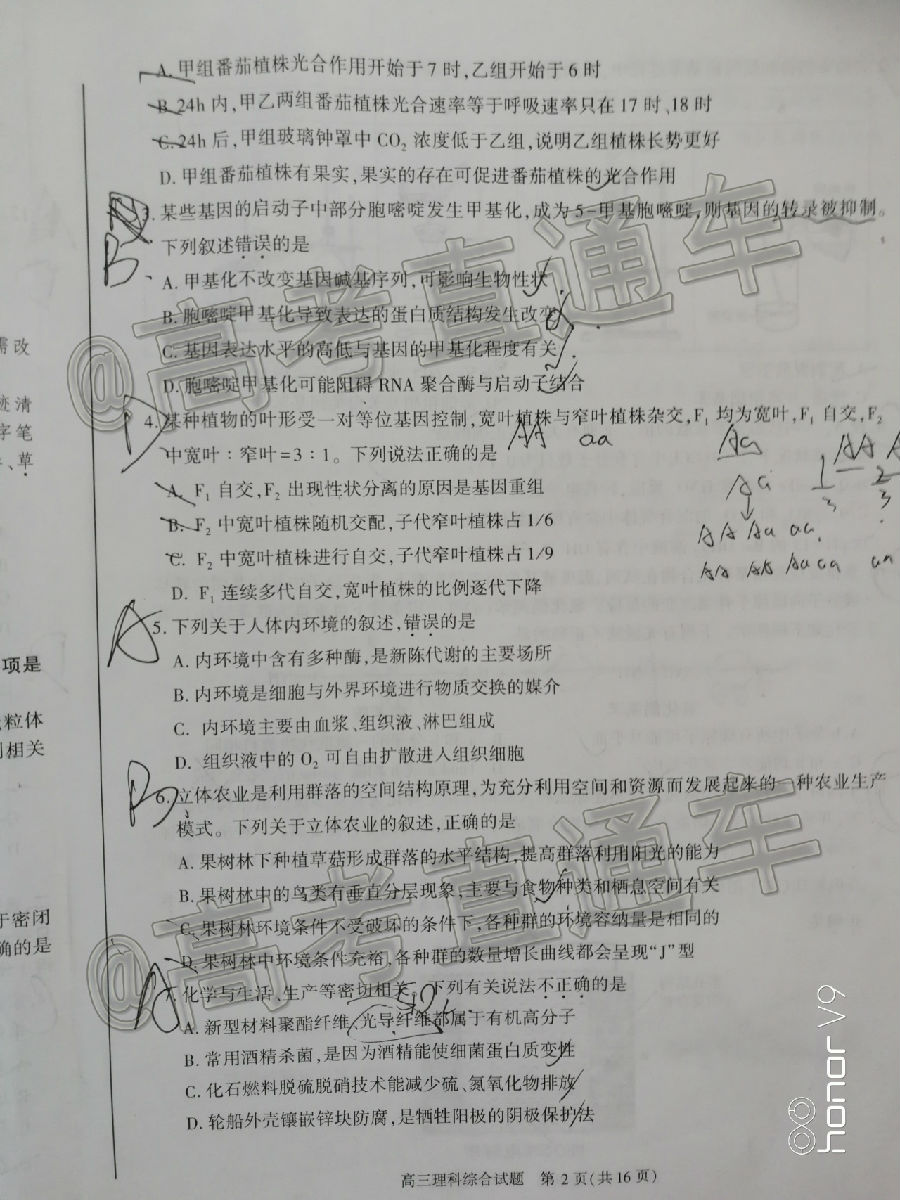 A. 甲组番茄植株光合作用开始于7时,乙组开始于6时
B. 24h 内,甲乙两组番茄植株光合速率等于呼吸速率只在17时、18时
C. 24h 后,甲组玻璃钟罩中 CO₂ 浓度低于乙组,说明乙组植株长势更好
D. 甲组番茄植株有果实,果实的存在可促进番茄植株的光合作用
某些基因的启动子中部分胞嘧啶发生甲基化,成为5-甲基胞嘧啶,则基因的转录被抑制。
B
下列叙述错误的是
A. 甲基化不改变基因碱基序列,可影响生物性状
B. 胞嘧啶甲基化导致表达的蛋白质结构发生改变
C. 基因表达水平的高低与基因的甲基化程度有关
D. 胞嘧啶甲基化可能阻碍 RNA 聚合酶与启动子结合
D
4. 某种植物的叶形受一对等位基因控制,宽叶植株与窄叶植株杂交,F₁ 均为宽叶,F₁ 自交,F₂
中宽叶:窄叶=3:1。下列说法正确的是
AA aa
Aa
Aa
AA Aa aa
1/3 AA
2/3
A. F₁ 自交,F₂ 出现性状分离的原因是基因重组
B. F₂ 中宽叶植株随机交配,子代窄叶植株占1/6
C. F₂ 中宽叶植株进行自交,子代窄叶植株占1/9
D. F₁ 连续多代自交,宽叶植株的比例逐代下降
A
5. 下列关于人体内环境的叙述,错误的是
A. 内环境中含有多种酶,是新陈代谢的主要场所
B. 内环境是细胞与外界环境进行物质交换的媒介
C. 内环境主要由血浆、组织液、淋巴组成
D. 组织液中的 O₂ 可自由扩散进入组织细胞
B
6. 立体农业是利用群落的空间结构原理,为充分利用空间和资源而发展起来的一种农业生产
模式。下列关于立体农业的叙述,正确的是
A. 果树林下种植草菇形成群落的水平结构,提高群落利用阳光的能力
B. 果树林中的鸟类有垂直分层现象,主要与食物种类和栖息空间有关
C. 果树林环境条件不受破坏的条件下,各种群的环境容纳量是相同的
D. 果树林中环境条件充裕,各种群的数量增长曲线都会呈现“J”型
A
7. 化学与生活、生产等密切相关。下列有关说法不正确的是
A. 新型材料聚酯纤维、光导纤维都属于有机高分子
B. 常用酒精杀菌,是因为酒精能使细菌蛋白质变性
C. 化石燃料脱硫脱硝技术能减少硫、氮氧化物排放
D. 轮船外壳镶嵌锌块防腐,是牺牲阳极的阴极保护法
高三理科综合试题 第2页(共16页)
需改
迹清
字笔
、草
项是
粒体
相关
于密闭
确的是
@高考直通车
@高考直通车
honor V9